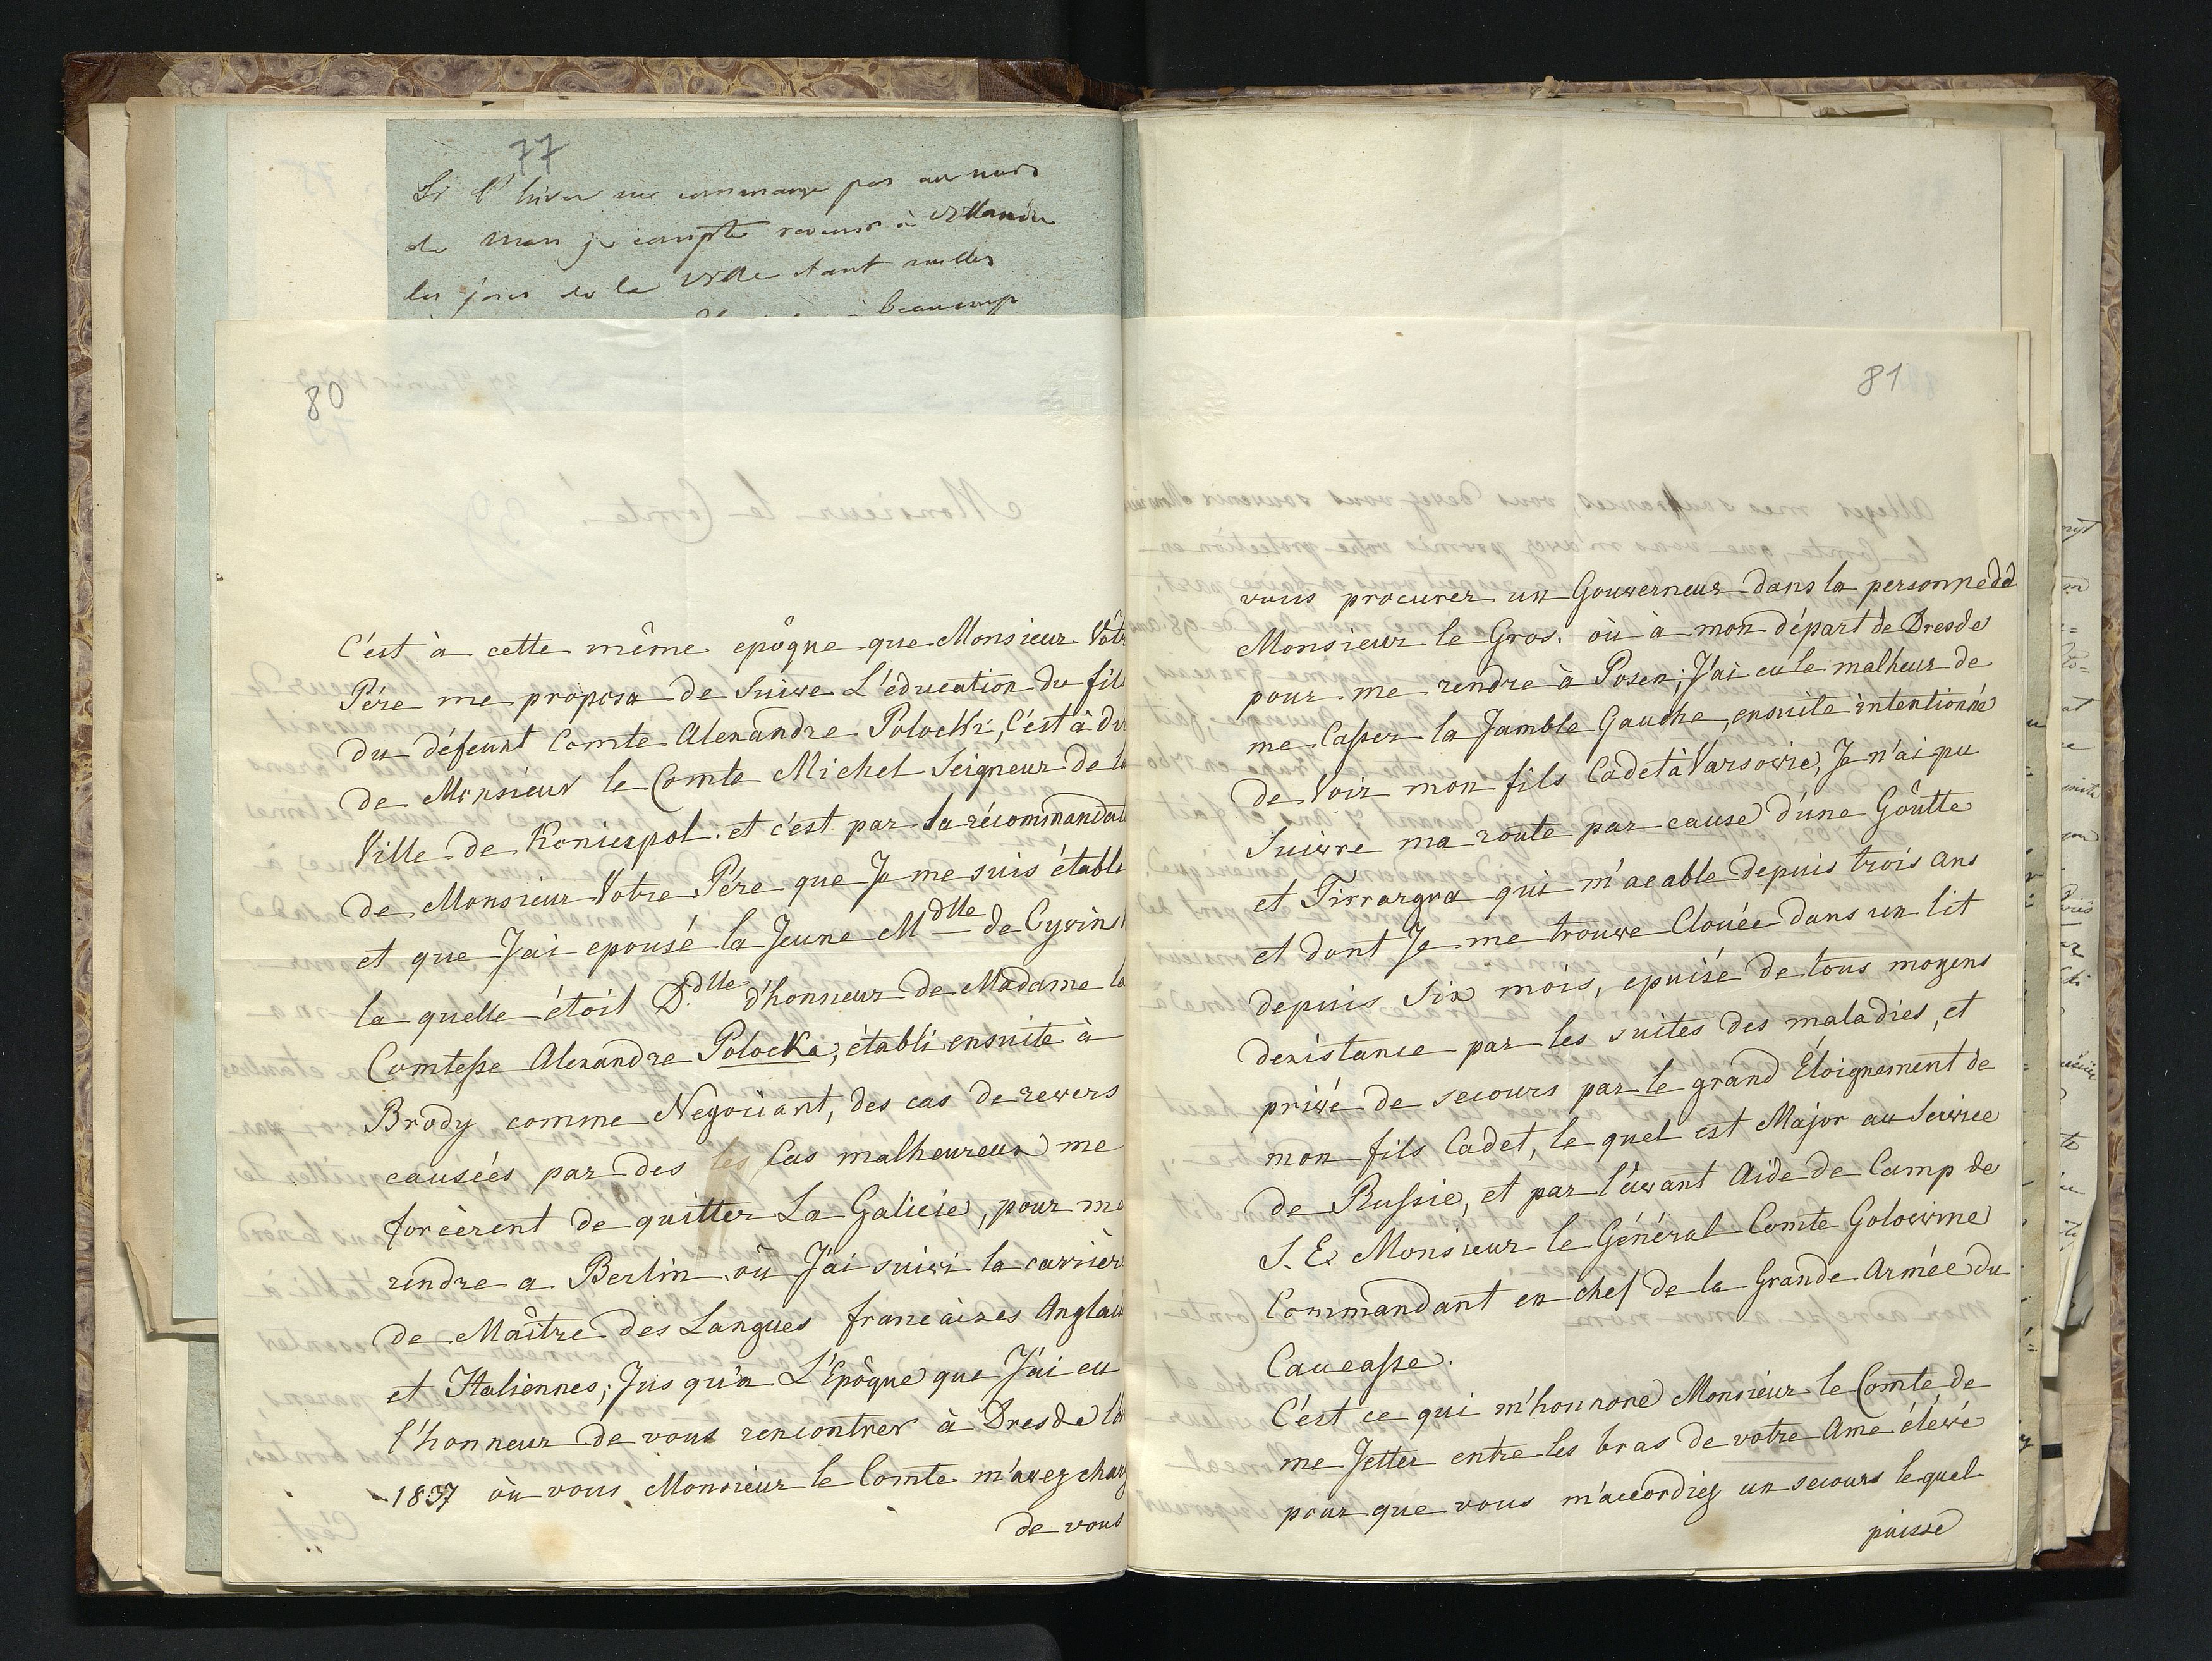 77
Si l'hiver ne commence pas au mois
de Mars je compte revenir à
les jours de la ville étant
beaucoup
80
C'est à cette même epôque que Monsieur Vôtr
Pére me proposa de Suiwe L'éducation du fils
du défeunt Comte Alexandre Potocki, C'est à di
de Monsieur le Comte Michel Seigneur de la
Ville de Koniezpol. et c'est par la récommandat
de Monsieur Votre Pére que Je me suis établi
et que J'ai epousé la Jeune Mdlle de Cywins
la quelle étoit D.dlle d'honneur de Madame la
Comtesse Alexandre Potocka, établi ensuite à
Brody comme Négociant, des cas de rewers
causées par des les Cas malheureux me
forcèrent de quitter La Galicie, pour me
rendre a Berlin où J'ai suiwi la carrièr
de Maître des Langues francaises Anglais
et Italiennes; Jus qu'a L'Epôque que J'ai eu
l'honneur de vous rencontrer à Dresde la
1837 où vous Monsieur le Comte m'avez charg
de vous
81
vous procurer un Gouwerneur dans la personne de
Monsieur le Gros. où à mon départ de Dresde
pour me rendre à Posen; J'ai eu le malheur de
me Casser la Jamble Gauche, ensuite intentionné
de Voir mon fils Cadet à Varsowie, Je n'ai pu
Suiwre ma route par cause d'une Goûtte
et Tirrargra qui m'acable depuis trois ans
et dont Je me trouwe Clouée dans un lit
depuis Six mois, epuisé de tous moyens
dexistance par les suites des maladies, et
priwé de secours par le grand Éloignement de
mon fils Cadet, le quel est Major au Serwice
de Russie, et par l'awant Aide de Camp de
S. E. Monsieur le Général Comte Golowine
Commandant en chef de la Grande Armée du
Caucasse.
C'est ce qui m'honnore Monsieur le Comte de
me Jetter entre les bras de votre Ame éléwé
pour que vous m'accordiez un secours lequel
puisse